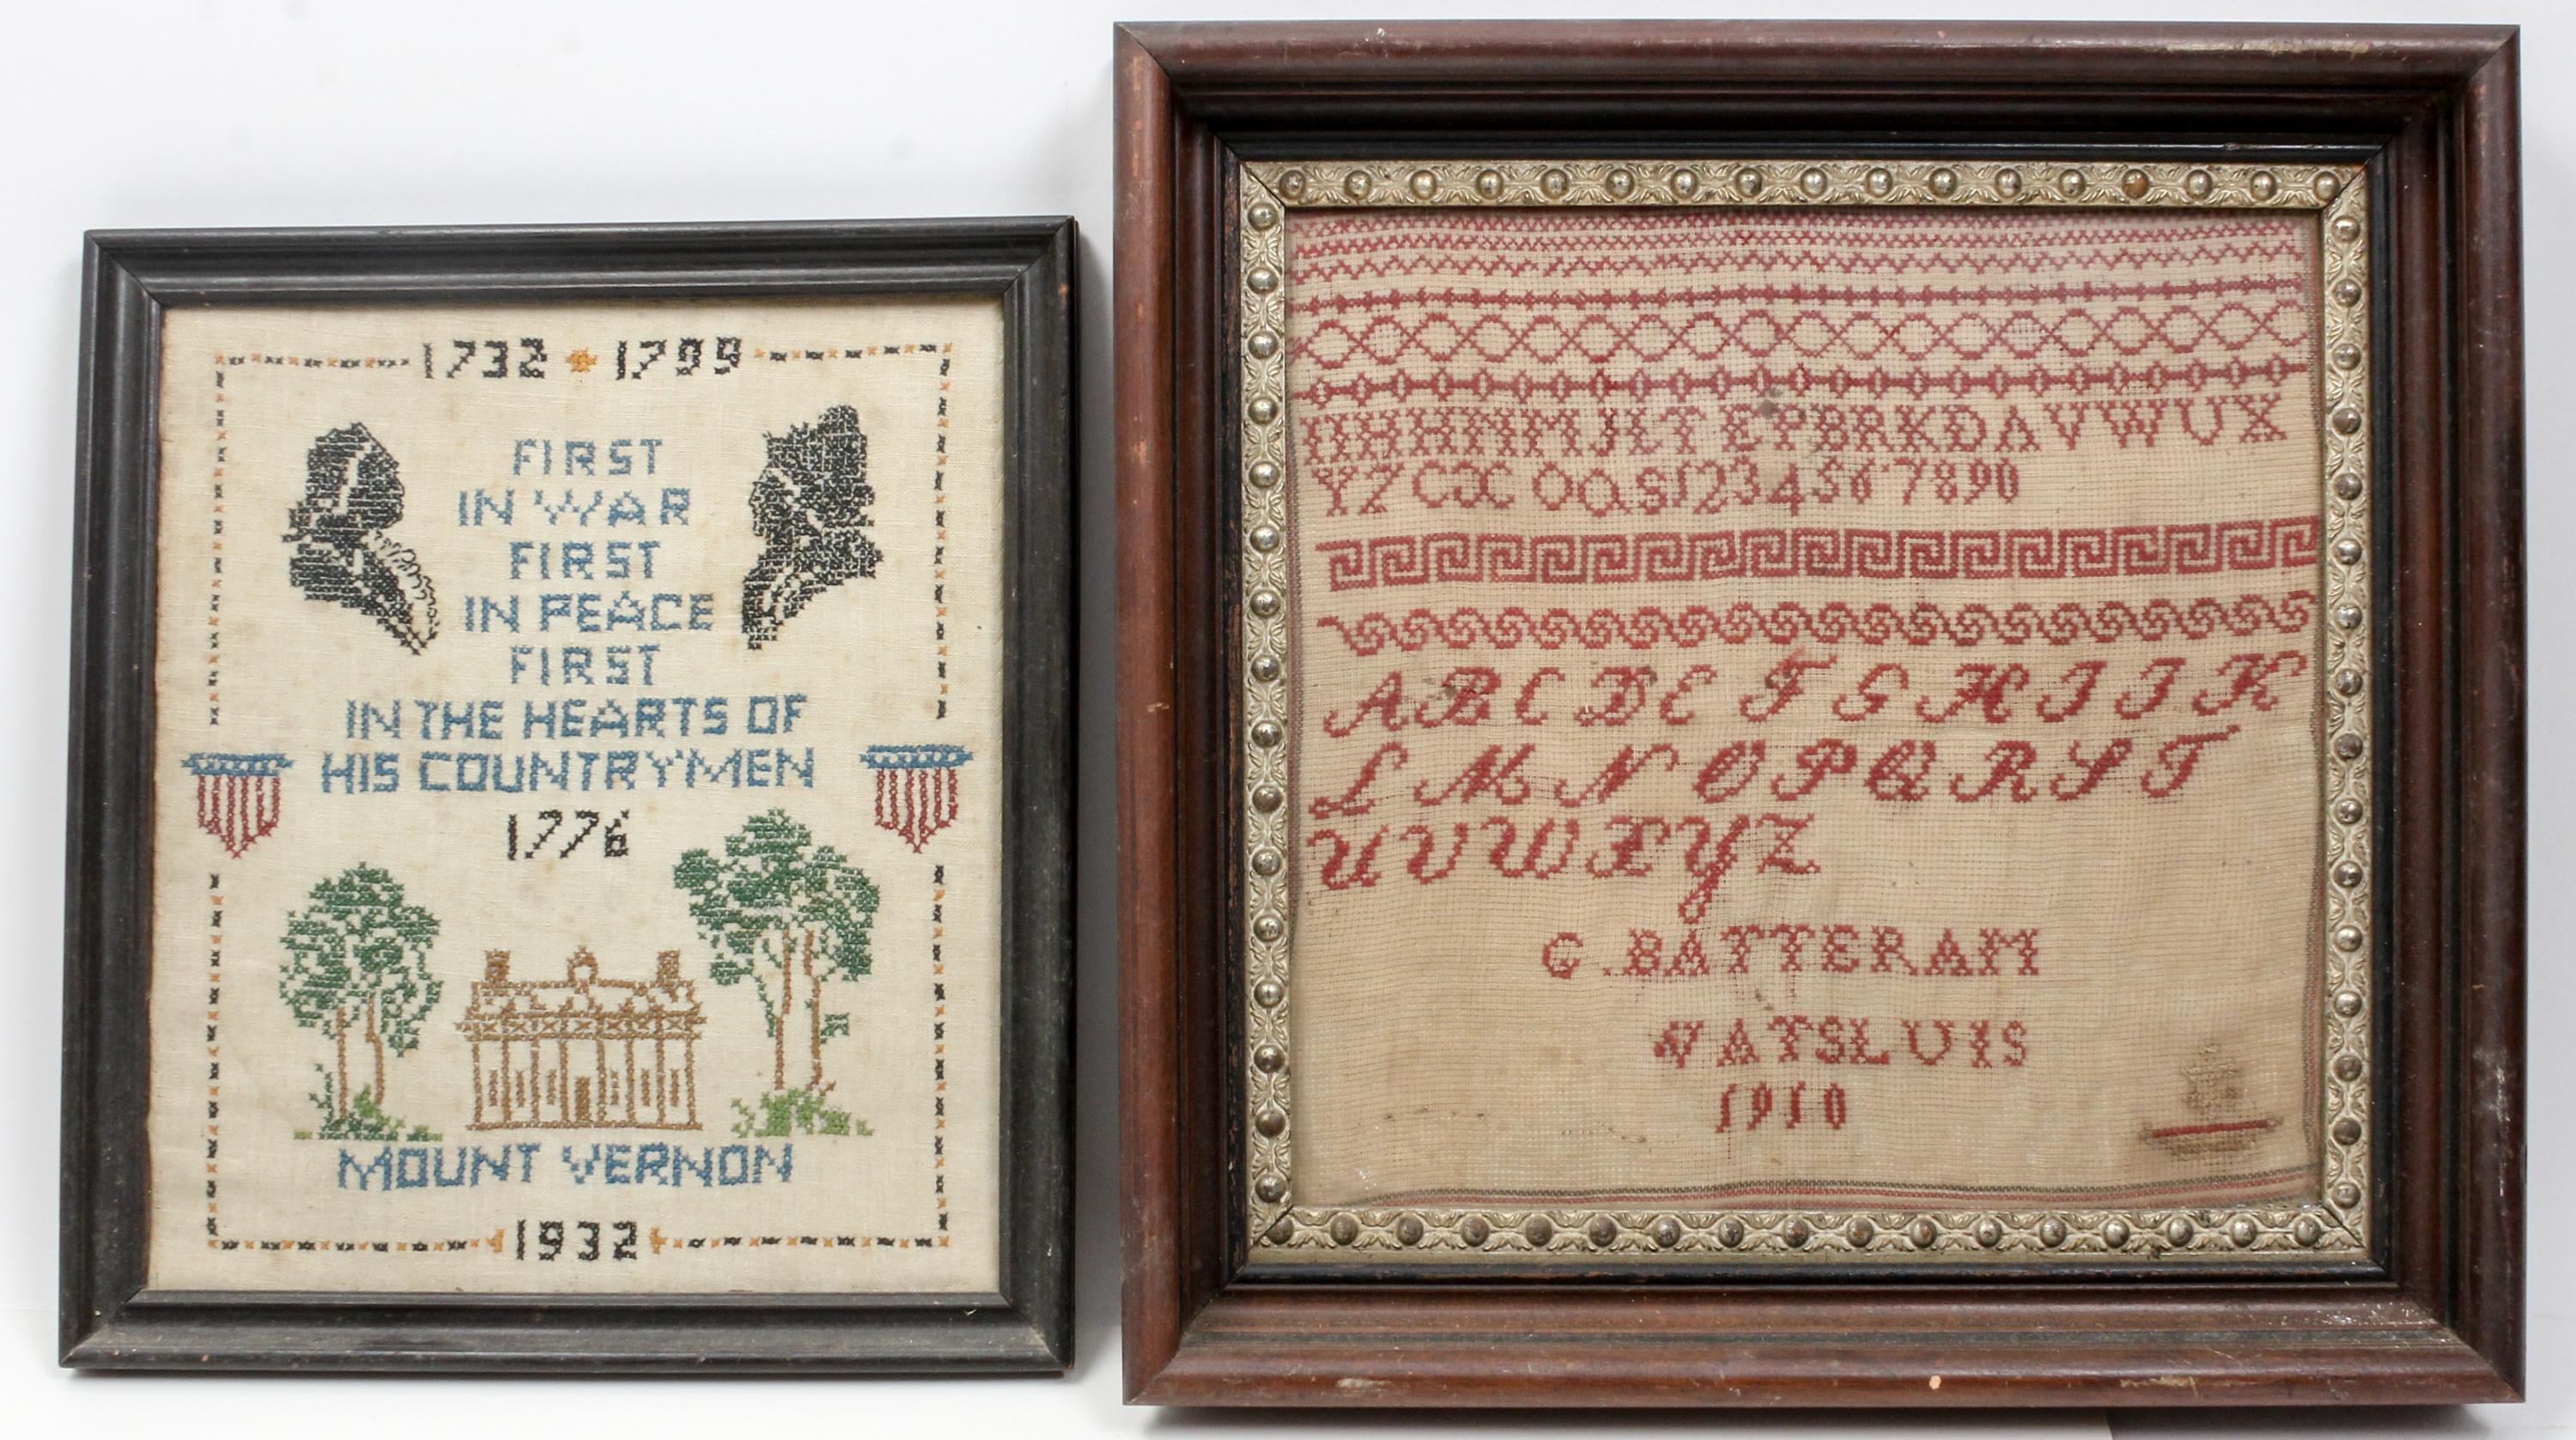 1732 1799
FIRST
IN WAR
FIRST
IN PEACE
FIRST
IN THE HEARTS OF
HIS COUNTRYMEN
1776
MOUNT VERNON
1932
YZ CX OQS1234567890
ABCDEFGHIJK
LMNOPQRST
UVWXYZ
G. BATTERAM
1910